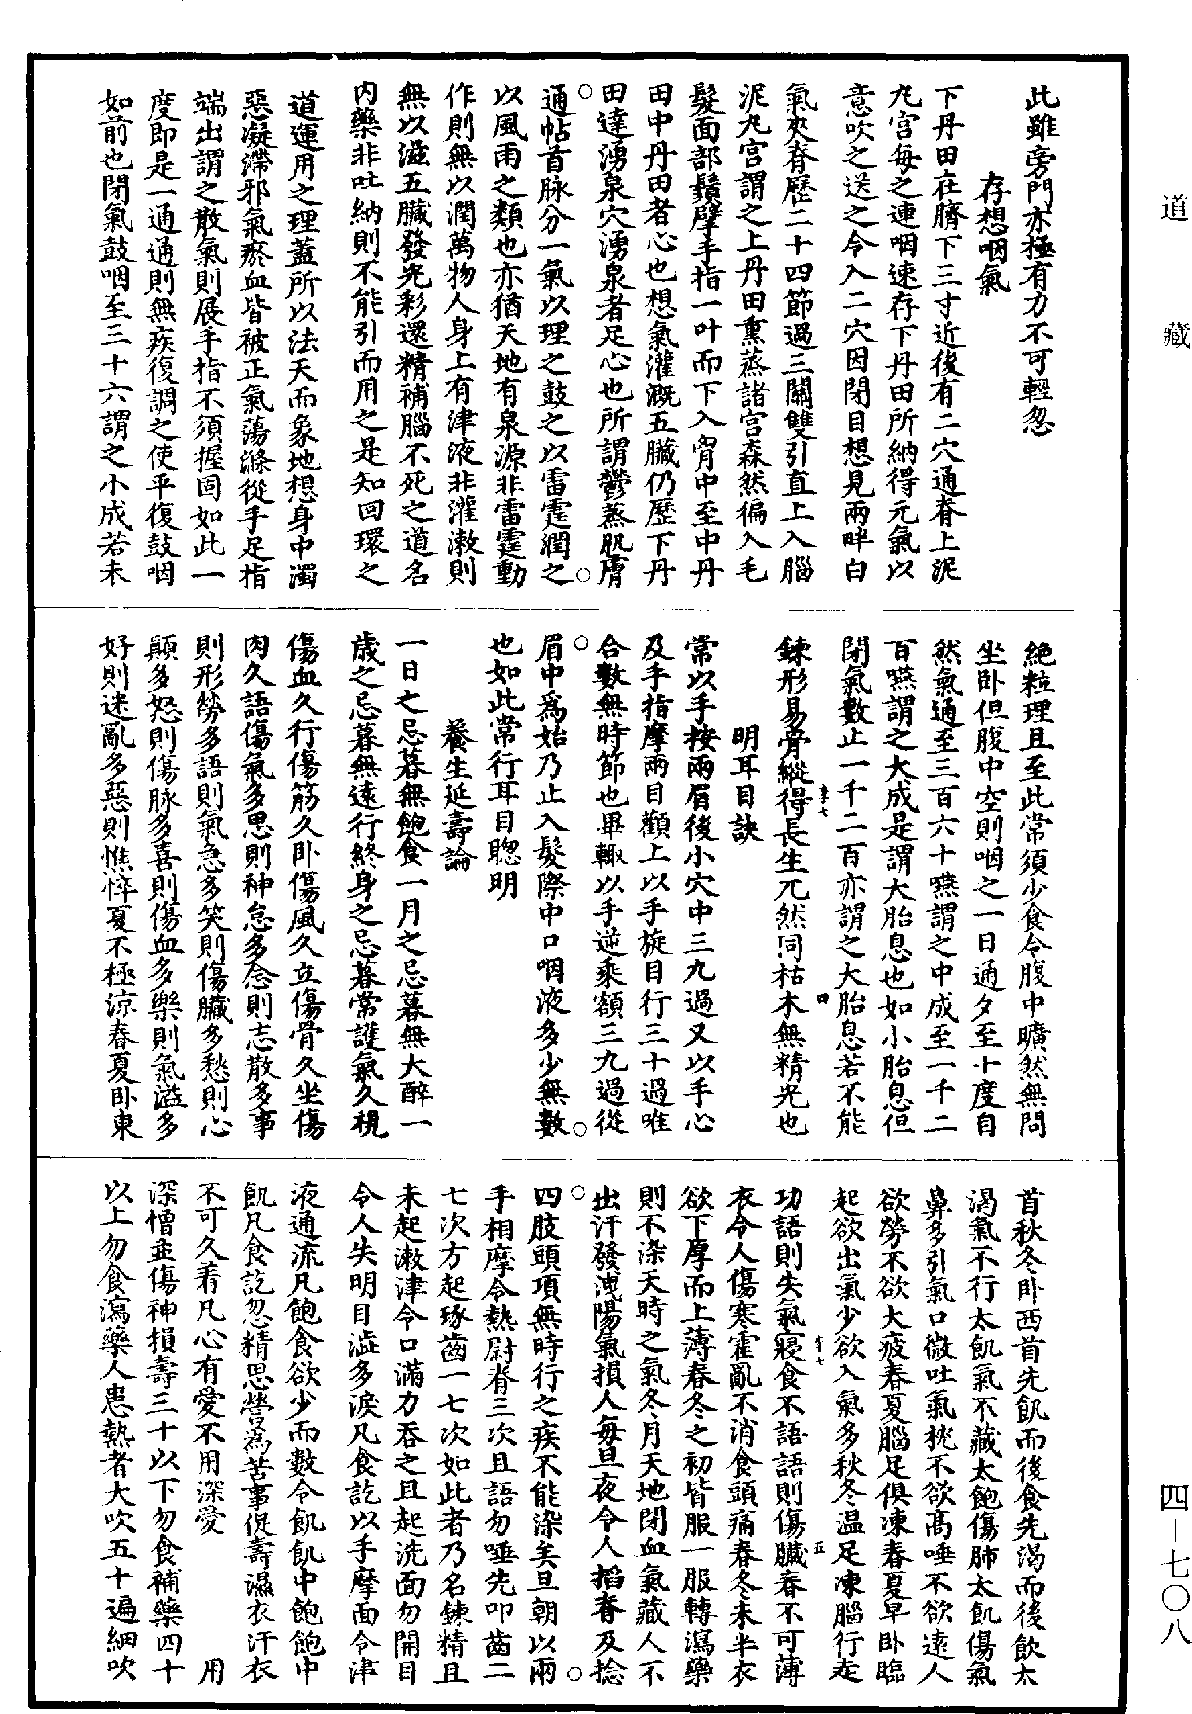 道藏
四—七〇八
此雖旁門亦極有力不可輕忽
存想咽氣
下丹田在臍下三寸近後有二穴通脊上泥
丸宮每之連咽速存下丹田所納得元氣以
意吹之送之令入二穴因閉目想見兩畔白
氣夾脊歷二十四節過三關雙引直上入腦
泥丸宮謂之上丹田熏蒸諸宮森然徧入毛
髮面部鬚擘手指一叶而下入胷中至中丹
田中丹田者心也想氣灌溉五臟仍歷下丹
田達湧泉穴湧泉者足心也所謂鬱蒸肌膚
通帖首脉分一氣以理之鼓之以雷霆潤之
以風雨之類也亦猶天地有泉源非雷霆動
作則無以潤萬物人身上有津液非灌漱則
無以滋五臟發光彩還精補腦不死之道名
內藥非吐納則不能引而用之是知回環之
道運用之理蓋所以法天而象地想身中濁
惡凝滯邪氣瘀血皆被正氣蕩滌從手足指
端出謂之散氣則展手指不須握固如此一
度即是一通通則無疾復調之使平復鼓咽
如前也閉氣鼓咽至三十六謂之小成若未
絕粒理且至此常須少食令腹中曠然無問
坐卧但腹中空則咽之一日通夕至十度自
然氣通至三百六十嚥謂之中成至一千二
百嚥謂之大成是謂大胎息也如小胎息但
閉氣數止一千二百亦謂之大胎息若不能
鍊形易骨縱得長生兀然同枯木無精光也
明耳目訣
常以手按兩眉後小穴中三九過又以手心
及手指摩兩目顴上以手旋目行三十過唯
合數無時節也畢輙以手逆乘額三九過從
眉中爲始乃止入髮際中口咽液多少無數
也如此常行耳目聰明
養生延壽論
一日之忌暮無飽食一月之忌暮無大醉一
歲之忌暮無遠行終身之忌暮常護氣久視
傷血久行傷筋久卧傷風久立傷骨久坐傷
肉久語傷氣多思則神怠多念則志散多事
則形勞多語則氣急多笑則傷臟多愁則心
顛多怒則傷脉多喜則傷血多樂則氣溢多
好則迷亂多惡則憔悴夏不極涼春夏卧東
首秋冬卧西首先飢而後食先渴而後飲太
渴氣不行太飢氣不藏太飽傷肺太飢傷氣
鼻多引氣口微吐氣枕不欲高唾不欲遠人
欲勞不欲大疲春夏腦足俱凍春夏早卧臨
起欲出氣少欲入氣多秋冬温足凍腦行走
功語則失氣寢食不語語則傷臟春不可薄
衣令人傷寒霍亂不消食頭痛春冬未半衣
欲下厚而上薄春冬之初皆服一服轉瀉藥
則不染天時之氣冬月天地閉血氣藏人不
出汗發洩陽氣損人每旦夜令人搯脊及捻
四肢頭項無時行之疾不能染矣旦朝以兩
手相摩令熱尉脊三次且語勿唾先叩齒二
七次方起琢齒一七次如此者乃名鍊精且
未起漱津令口滿力吞之且起洗面勿開目
令人失明目澁多淚凡食訖以手摩面令津
液通流凡飽食欲少而數令飢飢中飽飽中
飢凡食訖忽精思營爲苦事促壽濕衣汗衣
不可久着凡心有愛不用深愛 用
深憎並傷神損壽三十以下勿食補藥四十
以上勿食瀉藥人患熱者大吹五十遍細吹